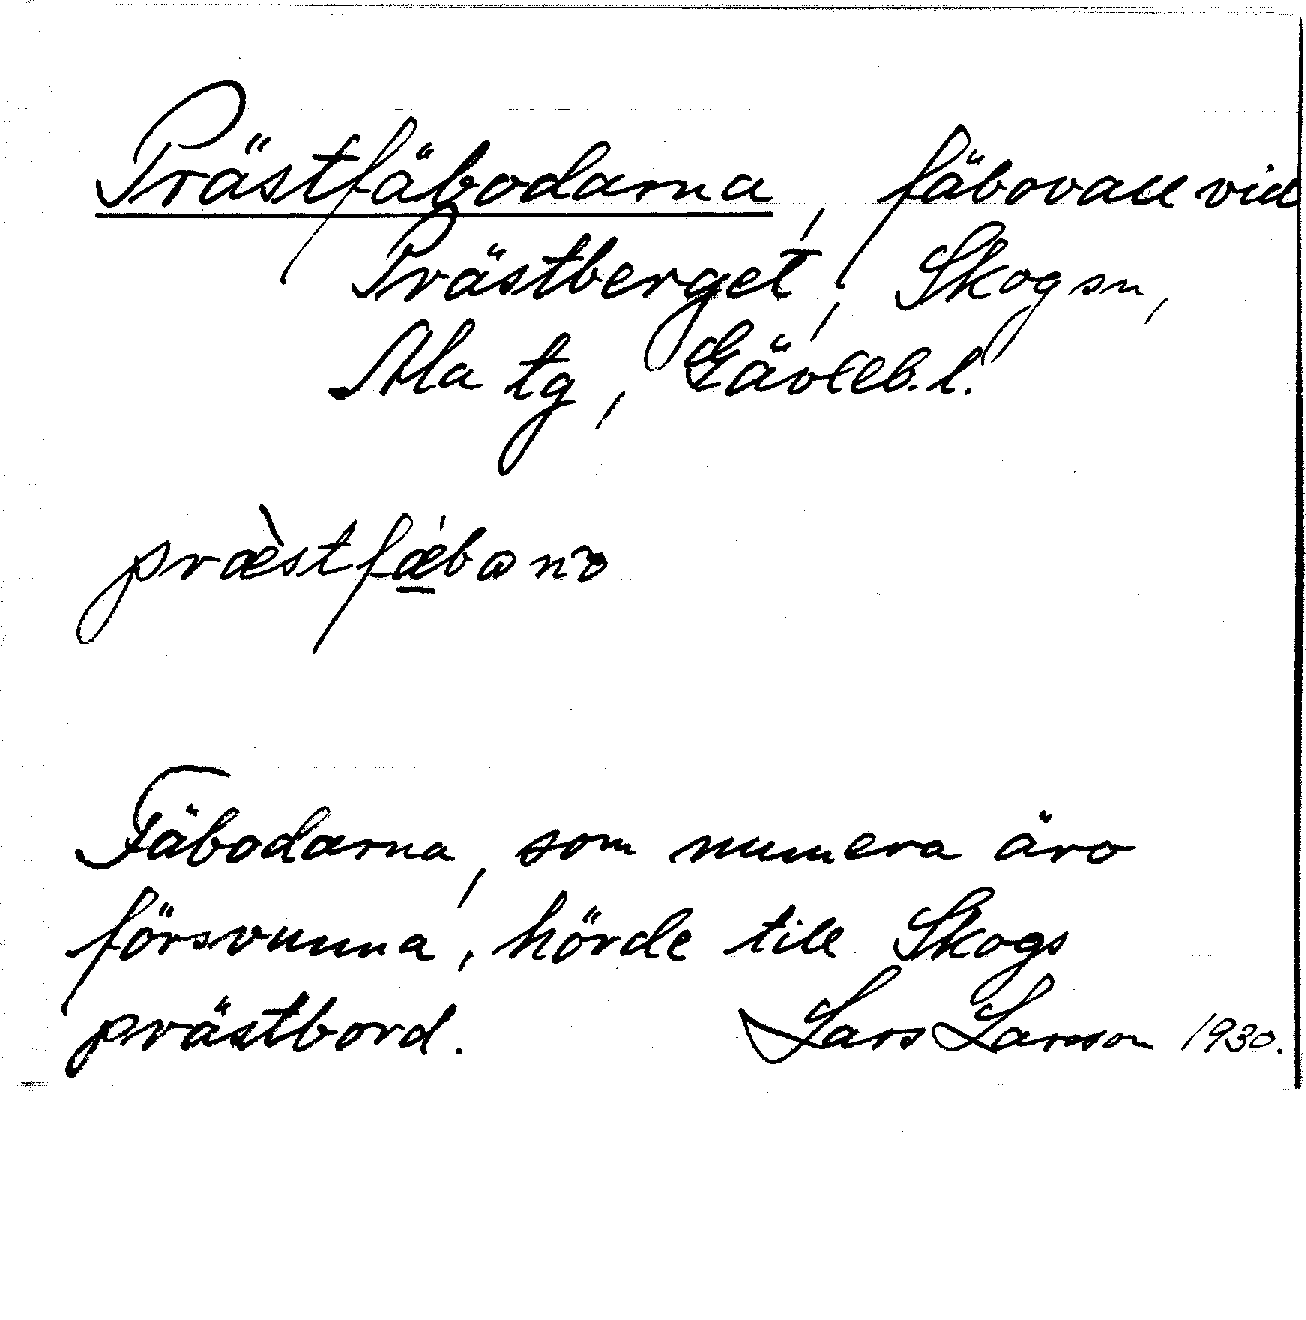 Prästfäbodarna, fäbovall vid
Prästberget, Skogsn,
Ala tg, Gävleb.l.
præ̀stfǽ̱bɷnɔ
Fäbodarna, som numera äro
försvunna, hörde till Skogs
prästbord. Lars Larsson 1930.